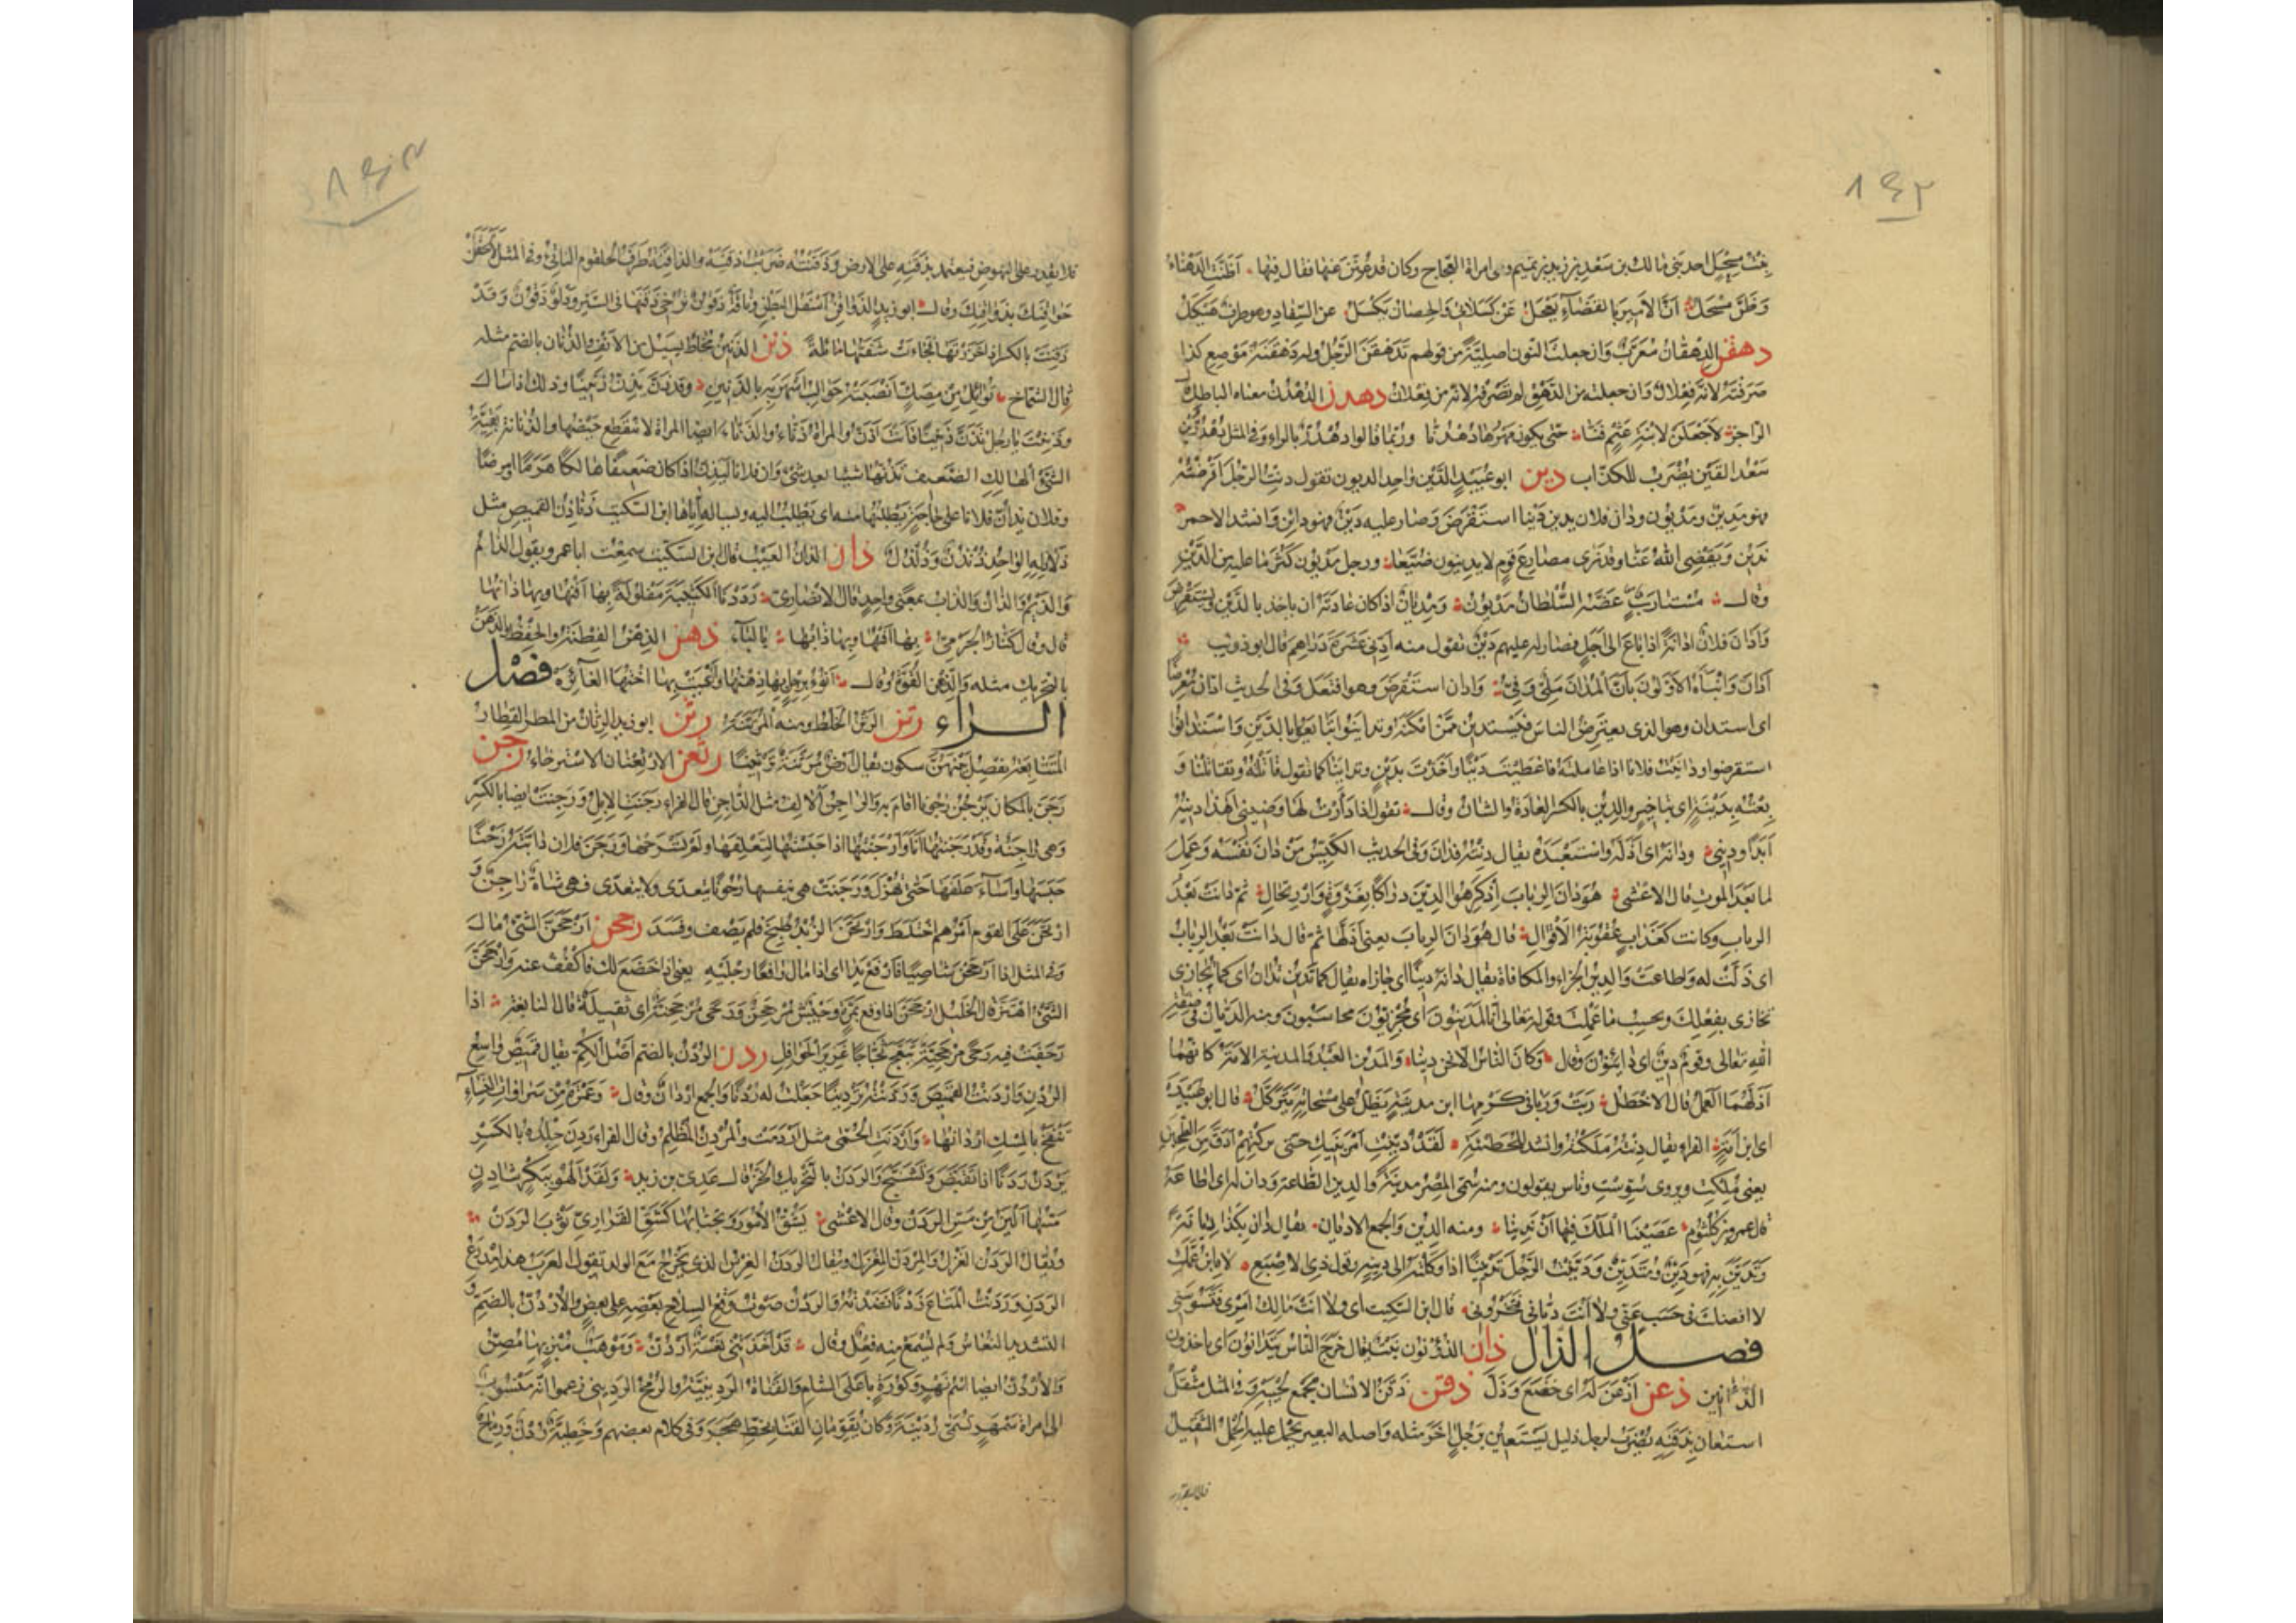 ١٤٢
بنت مسحل احد بنى مالك بن سعد بن زيد بن تميم وهى امراة العجاج وكان قد عنن عنها فقال فيها اظنت الدهناء
وظن مسحل ان الامير بالقضاء يعجل عن كسلاتى والحصان يكسل عن السفاد وهو طرف هيكل
دهقن الدهقان معرب وان جعلت النون اصلية من قولهم تدهقن الرجل وله دهقنة موضع كذا
صرفته لانه فعلال وان جعلته من الدهق لم تصرفه لانه من فعلان دهدن الدهدن معناه الباطل
الراجز لاجعلن لابنة عثم فنا حتى يكون مهرها دهدنا وربما قالوا دهدر بالراء وفى المثل دهدرين
سعد القين يضرب للكذاب دين ابو عبيد الدين واحد الديون تقول دنت الرجل اقرضته
فهو مدين ومديون ودان فلان يدين دينا استقرض وصار عليه دين فهو دائن وانشد الاحمر
ندين ويقضى الله عنا وقد نرى مصارع قوم لا يدينون ضيعا ورجل مديون كثر ما عليه من الدين
وقال مستارب عضه السلطان مديون ومديان اذا كان عادته ان ياخذ بالدين ويستقرض
وادان فلان ادانة اذا باع الى اجل فصار له عليهم دين تقول منه ادنى عشرة دراهم قال ابو ذويب
ادان وانباه الاولون بان المدان ملى وفى وادان استقرض وهو افتعل وفى الحديث ادان معرضا
اى استدان وهو الذى يعترض الناس فيستدين ممن امكنه وتداينوا تبايعوا بالدين واستدانوا
استقرضوا وداينت فلانا اذا عاملته فاعطيت دينا واخذت بدين وتداينا كما تقول قاتله وتقاتلنا و
بعته بدينة اى بتاخير والدين بالكسر العادة والشان وقال تقول اذا درات لها وضينى اهذا دينه
ابدا ودينى ودانه اى اذله واستعبده يقال دنته فدان وفى الحديث الكيس من دان نفسه وعمل
لما بعد الموت قال الاعشى هو دان الرباب اذ كرهوا الدين دراكا بغزوة وارتحال ثم دانت بعد
الرباب وكانت كعذاب عقوبة الاقوال قال هو دان الرباب يعنى اذلها ثم قال دانت بعد الرباب
اى ذلت له واطاعت والدين الجزاء والمكافاة يقال دانه دينا اى جازاه يقال كما تدين تدان اى كما تجازى
تجازى بفعلك وبحسب ما عملت وقوله تعالى أئنا لمدينون اى مجزيون محاسبون ومنه الديان فى صفة
الله تعالى وقوم دين اى دائنون وقال وكان الناس الا نحن دينا والمدين العبد والمدينة الامة كانهما
اذلهما العمل قال الاخطل ربت وربا فى كرمها ابن مدينة يظل على مسحاته يتركل قال ابو عبيدة
اى ابن امة الفراء يقال دنته ملكته وانشد للحطيئة لقد دينت امر بنيك حتى تركتهم ادق من الطحين
يعنى ملكت ويروى سوست وناس يقولون ومنه سمى المصر مدينة والدين الطاعة ودان له اى اطاعة
قال عمرو بن كلثوم عصينا الملك فيها ان ندينا ومنه الدين والجمع الاديان يقال دان بكذا ديانة
وتدين به فهو دين ومتدين ودينت الرجل تديينا اذا وكلته الى دينه وقول ذى الاصبع لاه ابن عمك
لا افضلت فى حسب عنى ولا انت ديانى فتخزونى قال ابن السكيت اى ولا انت مالك امرى فتسوسنى
فصل الذال ذان الذؤنون نبت يقال خرج الناس يتذأنون اى ياخذون
الذآنين ذعن اذعن له اى خضع وذل ذقن ذقن الانسان مجمع لحييه وفى المثل مثقل
استعان بذقنه يضرب لرجل ذليل يستعين برجل اخر مثله واصله البعير يحمل عليه الحمل الثقيل
فلا يقدر على النهوض فيعتمد بذقنه على الارض وذقنته ضربت ذقنه والذاقنة طرف الحلقوم الناتئ وفى المثل لالحقن
حواقنك بذواقنك وقال ابو زيد الذواقن اسفل البطن وناقة ذقون ترخى ذقنها فى السير ودلو ذقون وقد
ذقنت بالكسر اذا خرزتها فجاءت شفتها مائلة ذنن الذنين مخاط يسيل من الانف والذنان بالضم مثله
قال الشماخ توائل من مصك انصبته حوالب اسهرية بالذنين وقد ذن يذن ذنينا وذلك اذا سال
وذننت يا رجل تذن ذنينا فانت اذن والمراة ذناء والذناء ايضا المراة لا ينقطع حيضها والذنانة بقية
الشئ الهالك الضعيف تذنها شيئا بعد شئ وان فلانا ليذن اذا كان ضعيفا هالكا هرما او مرضا
وفلان يذان فلانا على حاجة يطلبها منه اى يطلب اليه ويساله اياها ابن السكيت ذناذن القميص مثل
ذلاذله الواحد ذنذن وذلذل ذان الذان العيب قال ابن السكيت سمعت ابا عمرو يقول الذام
والذيم والذان والذاب بمعنى واحد قال الانصارى رددنا الكتيبة مفلولة بها افنها وبها ذانها
قال وقال كناز الجرمى بها افنها وبها ذابها بالباء ذهن الذهن الفطنة والحفظ والذهن
بالتحريك مثله والذهن القوة وقال انوء برجل بها ذهنها واعيت بها اختها الغائرة فصل
الراء رتن الرتن الخلط ومنه المرتنة رثن ابو زيد الرثان من المطر القطار
المتتابعة يفصل بينهن سكون يقال ارض مرثنة ترثينا رثعن الارثعنان الاسترخاء رجن
رجن بالمكان يرجن رجونا اقام به والراجن الالف مثل الداجن قال الفراء رجنت الابل ورجنت ايضا بالكسر
وهى راجنة وقد رجنتها انا وارجنتها اذا حبستها لتعلفها ولم تسرحها ورجن فلان دابته رجنا
حبسها واساء علفها حتى تهزل ورجنت هى بنفسها رجونا يتعدى ولا يتعدى فهى شاة راجن و
ارتجن على القوم امرهم اختلط وارتجن الزبد طبخ فلم يصف وفسد رجحن ارجحن الشئ مال
وفى المثل اذا ارجحن شاصيا فارفع يدا اى اذا مال رافعا رجليه يعنى اذا خضع لك فاكفف عنه وارجحن
الشئ اهتز قال الخليل ارجحن اذا وقع بمرة وجيش مرجحن ورحى مرجحنة اى ثقيلة قال النابغة اذا
رجفت فيه رحى مرجحنة تبعج ثجاجا غزير الحوافل ردن الردن بالضم اصل الكم يقال قميص واسع
الردن واردنت القميص وردنته تردينا جعلت له ردنا والجمع اردان وقال وعمرة من سروات النساء
تنفح بالمسك اردانها واردنت الحمى مثل اردمت والمردن المظلم وقال الفراء ردن جلده بالكسر
يردن ردنا اذا تقبض وتشنج والردن بالتحريك الخز قال عدى بن زيد ولقد الهو ببكر شادن
مسها الين من مس الردن وقال الاعشى يشق الامور ويجتابها كشق القرارى ثوب الردن
ويقال الردن الغزل والمردن المغزل ويقال الردن الغرس الذى يخرج مع الولد تقول العرب هذا مدرع
الردن وردنت المتاع ردنا نضدته والردن صوت وقع السلاح بعضه على بعض والاردن بالضم و
التشديد النعاس ولم يسمع منه فعل وقال قد اخذتنى نعسة اردن وموهب مبز بها مصن
والاردن ايضا اسم نهر وكورة باعلى الشام والقناة الردينية والرمح الردينى زعموا انه منسوب
الى امراة سمهر تسمى ردينة وكانا يقومان القنا بخط هجر وفى كلام بعضهم وخطية ردن ورماح